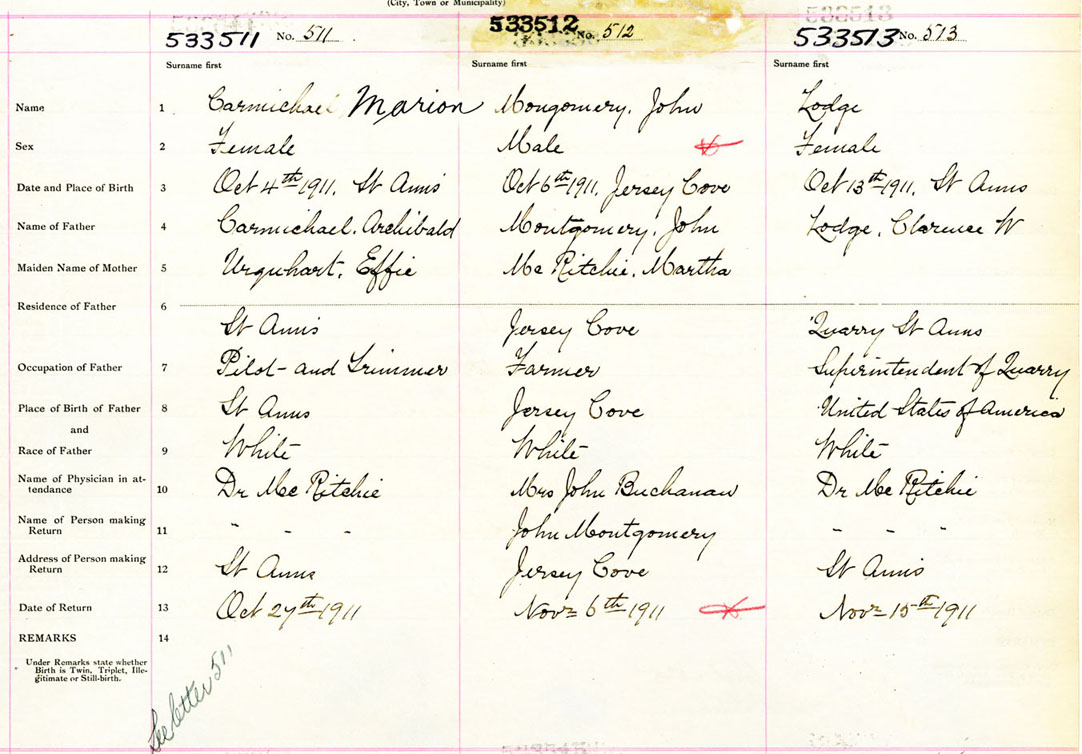 (City, Town or Municipality)
533511 No. 511 533512 No. 512 533513 No. 513
Surname first Surname first Surname first
Name 1 Carmichael Marion Mongomery, John Lodge
Sex 2 Female Male Female
Date and Place of Birth 3 Oct 4th 1911, St Anns Oct 6th 1911, Jersey Cove Oct 13th 1911, St Anns
Name of Father 4 Carmichael, Archibald Montgomery, John Lodge, Clarence W
Maiden Name of Mother 5 Urquhart, Effie Mc Ritchie, Martha
Residence of Father 6
St Anns Jersey Cove Quarry St Anns
Occupation of Father 7 Pilot and Trimmer Farmer Superintendent of Quarry
Place of Birth of Father 8 St Anns Jersey Cove United States of America
and
Race of Father 9 White White White
Name of Physician in at-
tendance 10 Dr Mc Ritchie Mrs John Buchanan Dr Mc Ritchie
Name of Person making
Return 11 " - - John Montgomery - - "
Address of Person making
Return 12 St Anns Jersey Cove St Anns
Date of Return 13 Oct 27th 1911 Nov 6th 1911 Nov 15th 1911
REMARKS 14
Under Remarks state whether
Birth is Twin, Triplet, Ille-
gitimate or Still-birth.
See letter 511